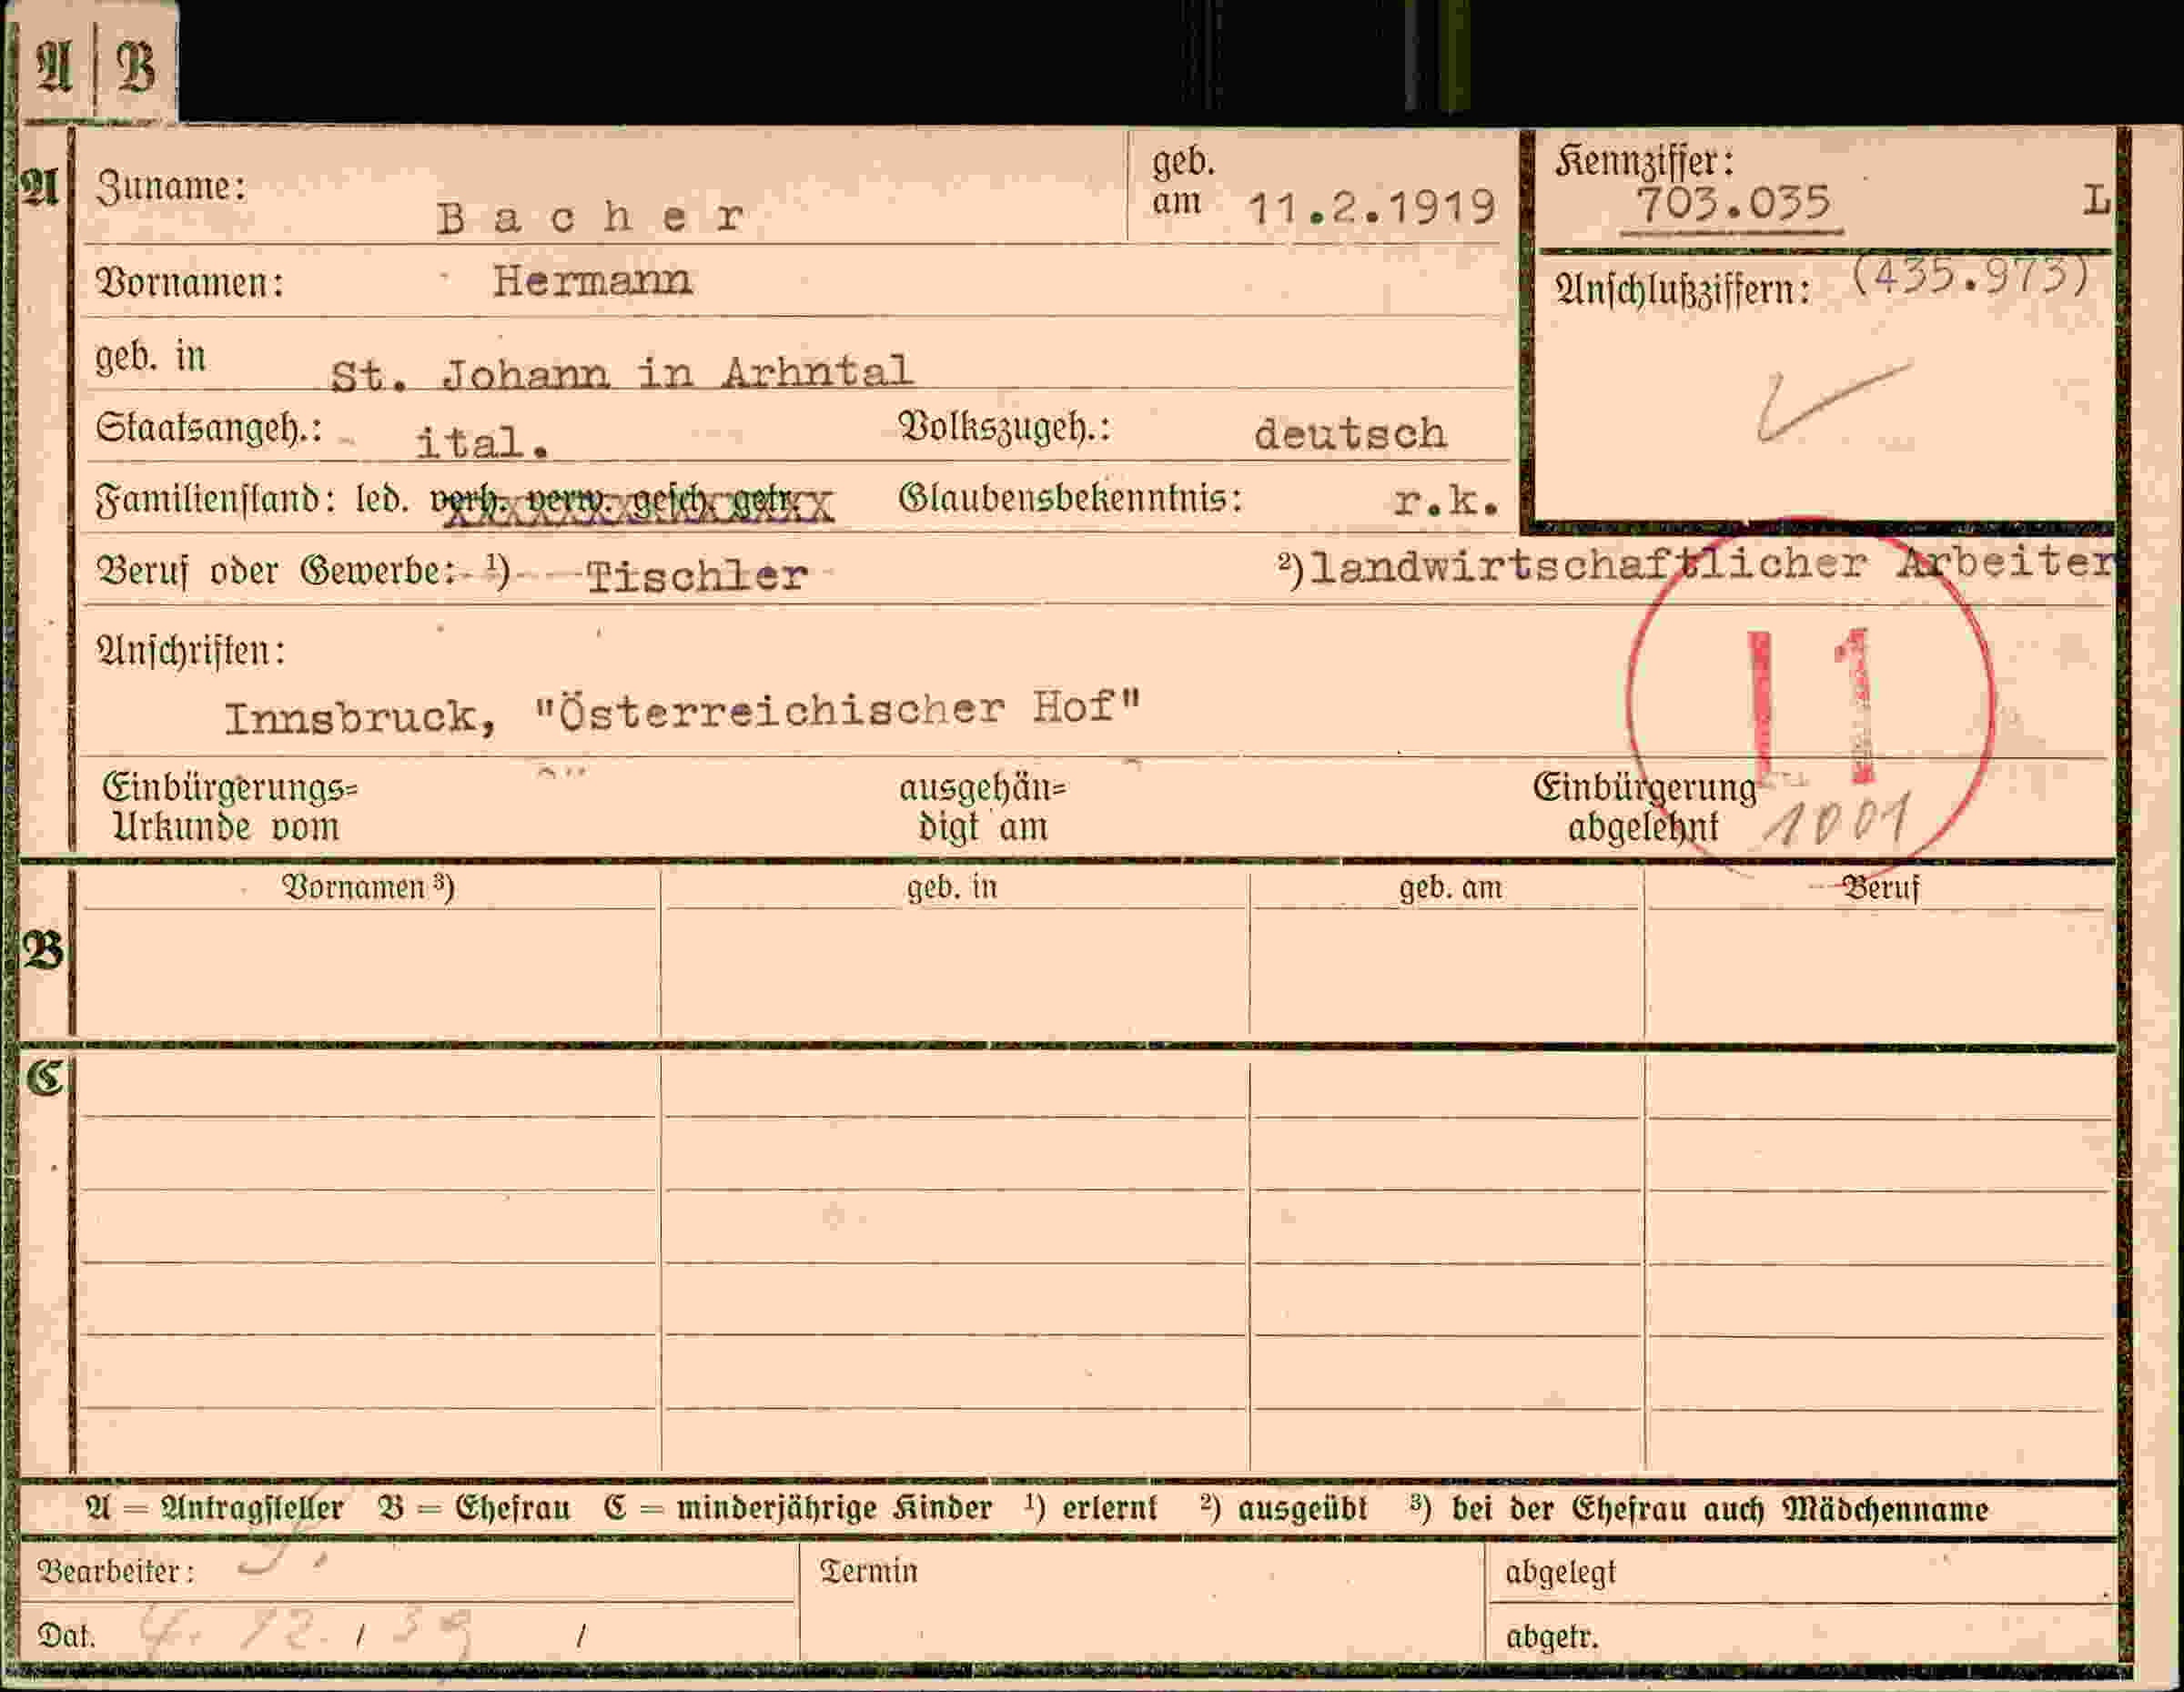 A | B
A
Zuname: Bacher
geb. am 11.2.1919
Kennziffer: 703.035 L
Vornamen: Hermann
Anschlußziffern: (435.973)
geb. in St. Johann in Arhntal
Staatsangeh.: ital. Volkszugeh.: deutsch
Familienstand: led. verh. verw. gesch. getr. Glaubensbekenntnis: r.k.
Beruf oder Gewerbe: ¹) Tischler ²) landwirtschaftlicher Arbeiter
Anschriften:
Innsbruck, "Österreichischer Hof"
11
Einbürgerungs= Urkunde vom
ausgehän= digt am
Einbürgerung abgelehnt 1001
Vornamen ³) geb. in geb. am Beruf
B
C
A = Antragsteller B = Ehefrau C = minderjährige Kinder ¹) erlernt ²) ausgeübt ³) bei der Ehefrau auch Mädchenname
Bearbeiter: Termin abgelegt
Dat. 4. 12. / 39 / abgetr.